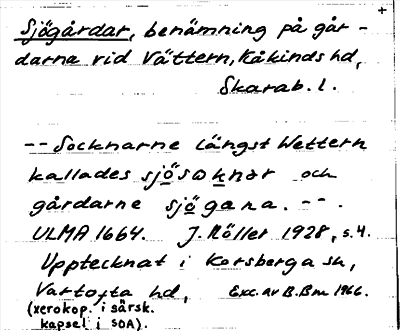 Sjögårdar, benämning på går-
darna vid Vättern, Kåkinds hd,
Skarab. l.
-- Socknarne längst Wettern
kallades sjösoknar och
gårdarne sjögana. --.
ULMA 1664. J. Röller 1928, s. 4.
Upptecknat i Korsberga sn,
Vartofta hd, Exc. av B. Bm 1966.
(xerokop. i särsk.
kapsel i SOA).